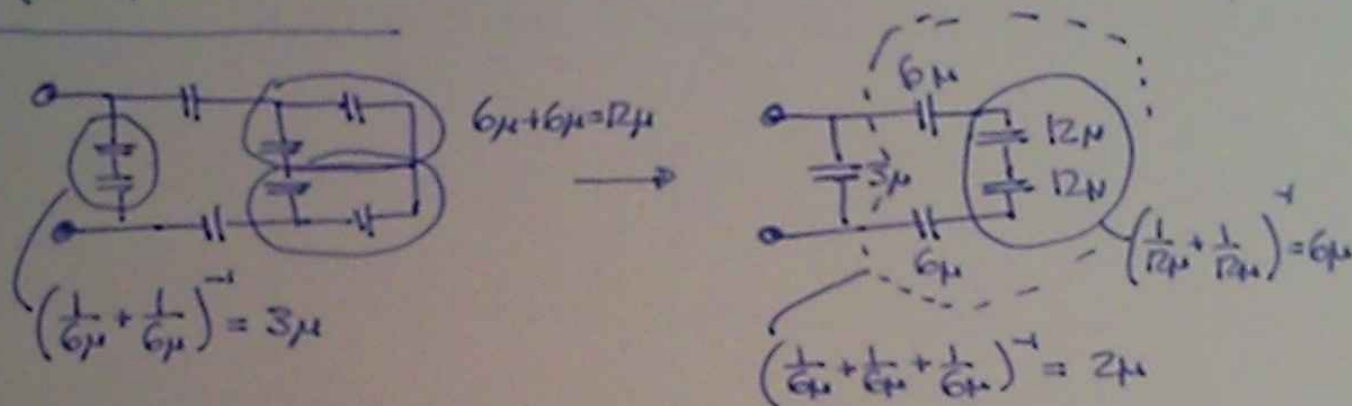 6μ+6μ=12μ
(1/6μ + 1/6μ)⁻¹ = 3μ
6μ
12μ
3μ
12μ
6μ
(1/12μ + 1/12μ)⁻¹ = 6μ
(1/6μ + 1/6μ + 1/6μ)⁻¹ = 2μ